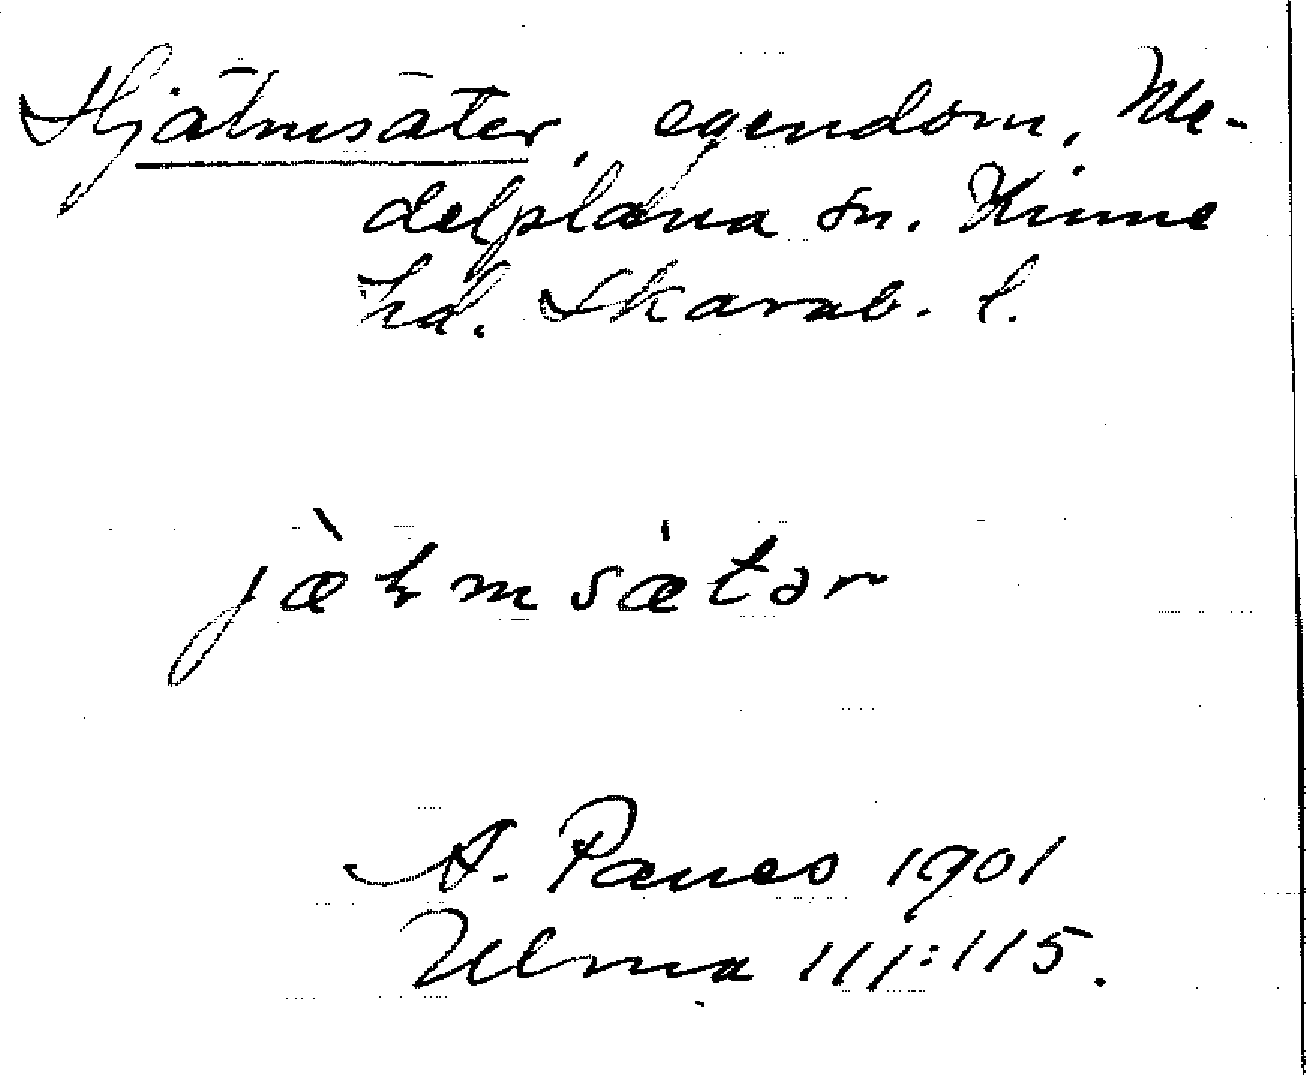 Hjälmsäter, egendom, Me-
delplana sn. Kinne
hd. Skarab. l.
jæ̀ɫmsætər
A. Paues 1901
Ulma 111:115.